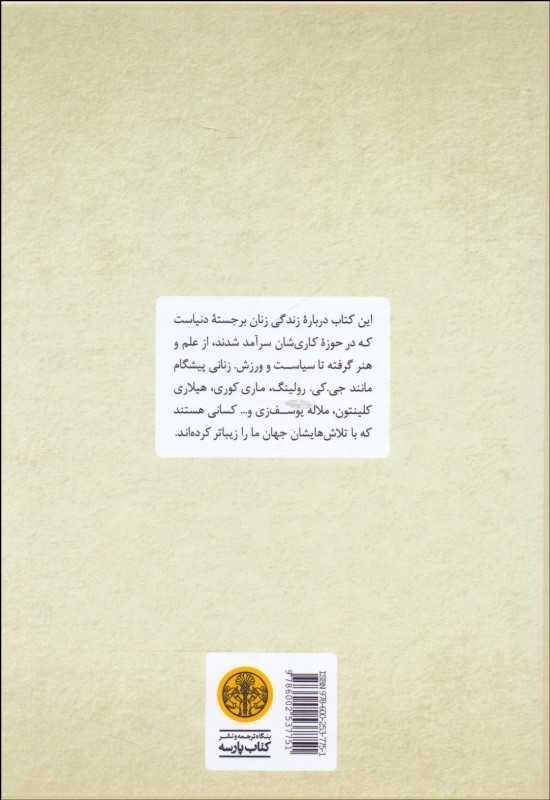 این کتاب دربارهٔ زندگی زنان برجستهٔ دنیاست
که در حوزهٔ کاری‌شان سرآمد شدند، از علم و
هنر گرفته تا سیاست و ورزش. زنانی پیشگام
مانند جی.کی. رولینگ، ماری کوری، هیلاری
کلینتون، ملاله یوسف‌زی و... کسانی هستند
که با تلاش‌هایشان جهان ما را زیباتر کرده‌اند.
بنگاه ترجمه و نشر
کتاب پارسه
ISBN 978-600-253-775-1
9786002537751